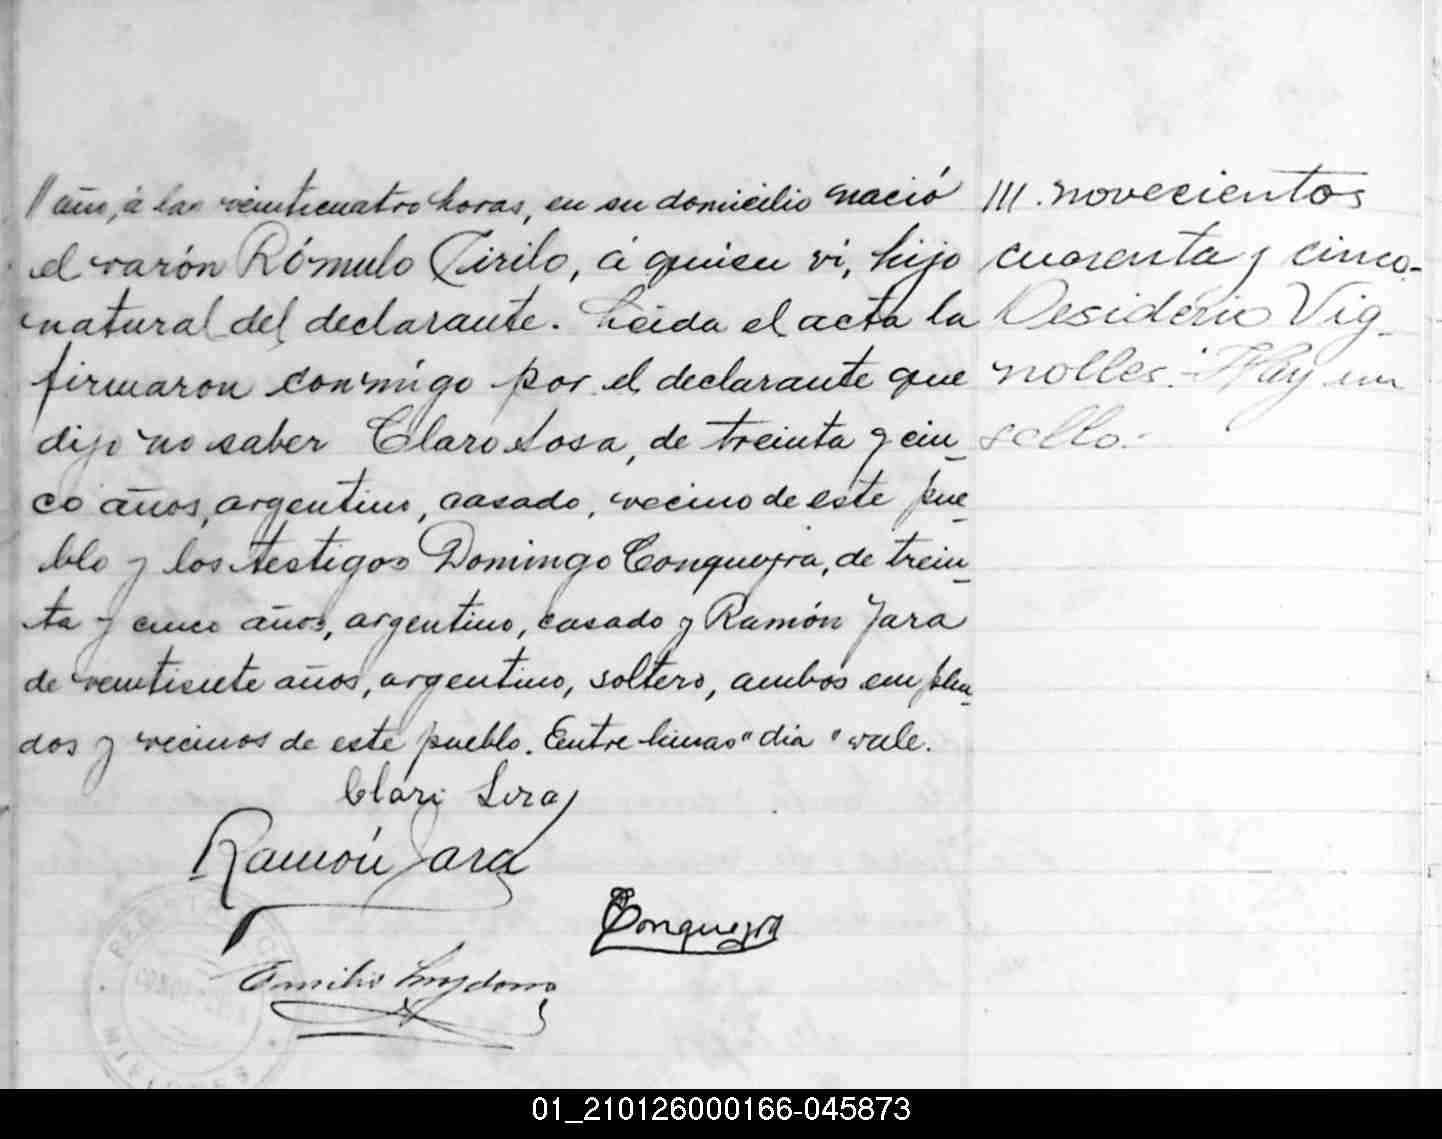 // año, á las veinticuatro horas, en su domicilio nació
el varón Rómulo Cirilo, á quien vi, hijo
natural del declarante. Leida el acta la
firmaron conmigo por el declarante que
dijo no saber Claro Sosa, de treinta y cin_
co años, argentino, casado, vecino de este pue_
blo y los testigos Domingo Conqueyra, de trein_
ta y cinco años, argentino, casado y Ramón Jara
de veintisiete años, argentino, soltero, ambos emplea_
dos y vecinos de este pueblo. Entre lineas "dia" vale.
Ramón Jara
Conqueyra
Emilio
REGISTRO
MISIONES
/// novecientos
cuarenta y cinco.-
Desiderio Vig_
nolles.- Hay un
sello.-
01_210126000166-045873